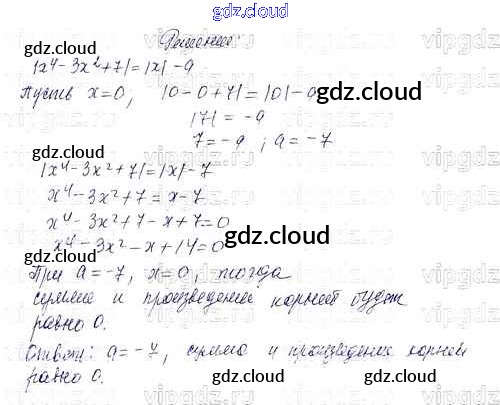 gdz.cloud
Решение:
gdz.cloud
|x⁴ - 3x² + 7| = |x| - a
gdz.cloud
Пусть x = 0, |0 - 0 + 7| = |0| - a
|7| = -a
7 = -a ; a = -7
gdz.cloud
|x⁴ - 3x² + 7| = |x| - 7
x⁴ - 3x² + 7 = x - 7
x⁴ - 3x² + 7 - x + 7 = 0
x⁴ - 3x² - x + 14 = 0
gdz.cloud
При a = -7, x = 0, тогда
gdz.cloud
сумма и произведение корней будет
равно 0.
gdz.cloud
Ответ: a = -7, сумма и произведение корней
равно 0.
gdz.cloud
gdz.cloud